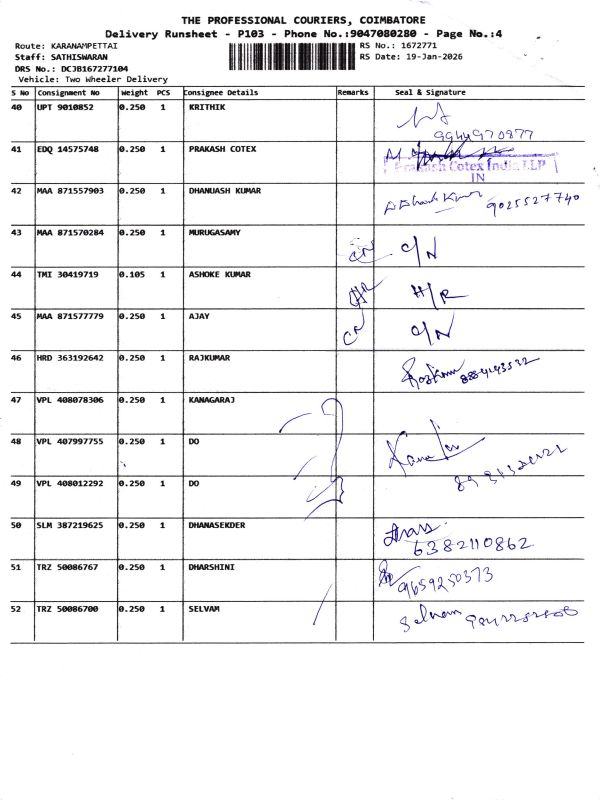 THE PROFESSIONAL COURIERS, COIMBATORE
Delivery Runsheet - P103 - Phone No.:9047080280 - Page No.:4
Route: KARANAMPETTAI RS No.: 1672771
Staff: SATHISWARAN RS Date: 19-Jan-2026
DRS No.: DCJB167277104
Vehicle: Two Wheeler Delivery
S No Consignment No Weight PCS Consignee Details Remarks Seal & Signature
40 UPT 9010852 0.250 1 KRITHIK
9944970877
41 EDQ 14575748 0.250 1 PRAKASH COTEX
Prakash Cotex India LLP
IN
42 MAA 871557903 0.250 1 DHANUASH KUMAR
9025527740
43 MAA 871570284 0.250 1 MURUGASAMY CN C/N
44 TMI 30419719 0.105 1 ASHOKE KUMAR HR H/R
45 MAA 871577779 0.250 1 AJAY CN C/N
46 HRD 363192642 0.250 1 RAJKUMAR
47 VPL 408078306 0.250 1 KANAGARAJ
48 VPL 407997755 0.250 1 DO
49 VPL 408012292 0.250 1 DO
50 SLM 387219625 0.250 1 DHANASEKDER
6382110862
51 TRZ 50086767 0.250 1 DHARSHINI 9659250373
52 TRZ 50086700 0.250 1 SELVAM Selvam